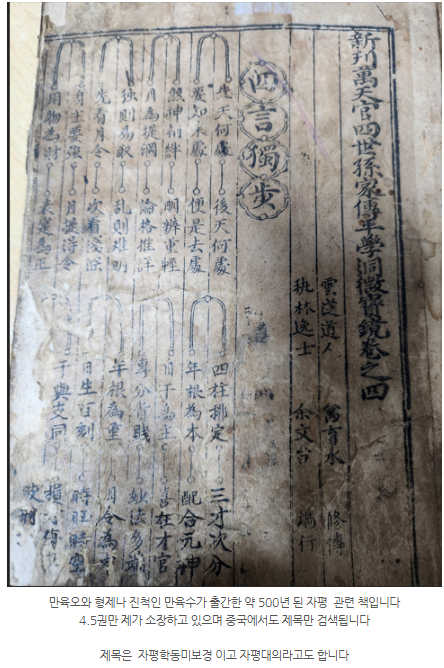 新刊萬天官四世孫家傳平學洞微寶鏡卷之四
道人 萬育水
林逸士 余文台
四言獨步
先天何處 後天何處 四柱排定 三才次分
要知來處 便是去處 年根為本 配合元神
神相絆 明辨重輕 日干為主 喜在才官
月為提綱 論格推詳 專分貴賤 妙法多
獨則易取 亂則难明 年根為重 月令為
先看月令 次看淺深 日生百刻 時旺時空
日主要強 月提得令 干與支同 損
用物為財 表 為正
만육오와 형제나 진척인 만육수가 출간한 약 500년 된 자평 관련 책입니다
4.5권만 제가 소장하고 있으며 중국에서도 제목만 검색됩니다
제목은 자평학동미보경 이고 자평대의라고도 합니다